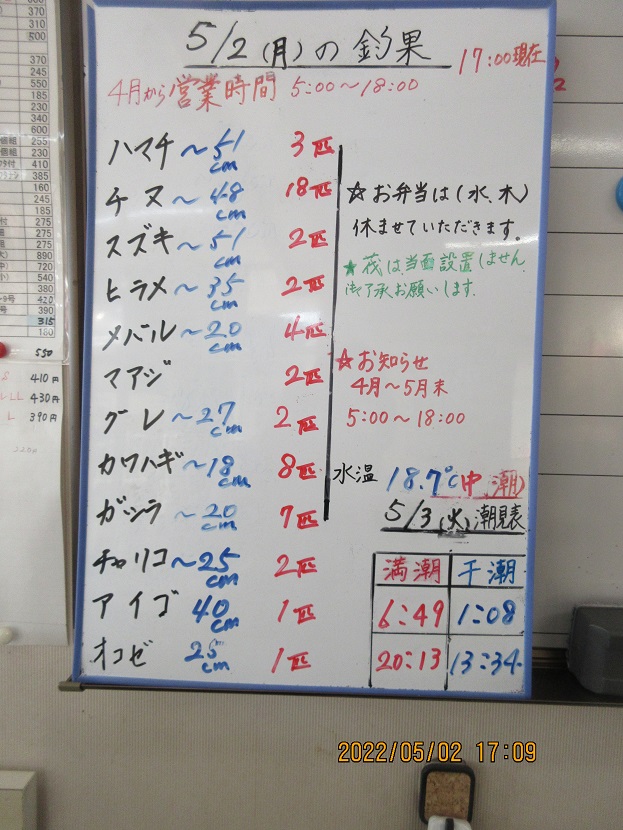 5/2(月)の釣果
17:00現在
4月から営業時間 5:00〜18:00
ハマチ 〜51cm 3匹
チヌ 〜48cm 18匹
スズキ 〜51cm 2匹
ヒラメ 〜35cm 2匹
メバル 〜20cm 4匹
マアジ 2匹
グレ 〜27cm 2匹
カワハギ 〜18cm 8匹
ガシラ 〜20cm 7匹
チャリコ 〜25cm 2匹
アイゴ 40cm 1匹
オコゼ 25cm 1匹
☆お弁当は(水、木)
休ませていただきます。
★筏は当面設置しません
御了承お願いします.
☆お知らせ
4月〜5月末
5:00〜18:00
水温 18.7℃(中潮)
5/3(火)潮見表
満潮 干潮
6:49 1:08
20:13 13:34
370
310
500
370
245
550
370
245
550
230
340
600
255
230
410
390
385
160
245
275
275
275
890
720
540
380
420
390
315
180
550
S 410円
LL 430円
L 390円
2022/05/02 17:09